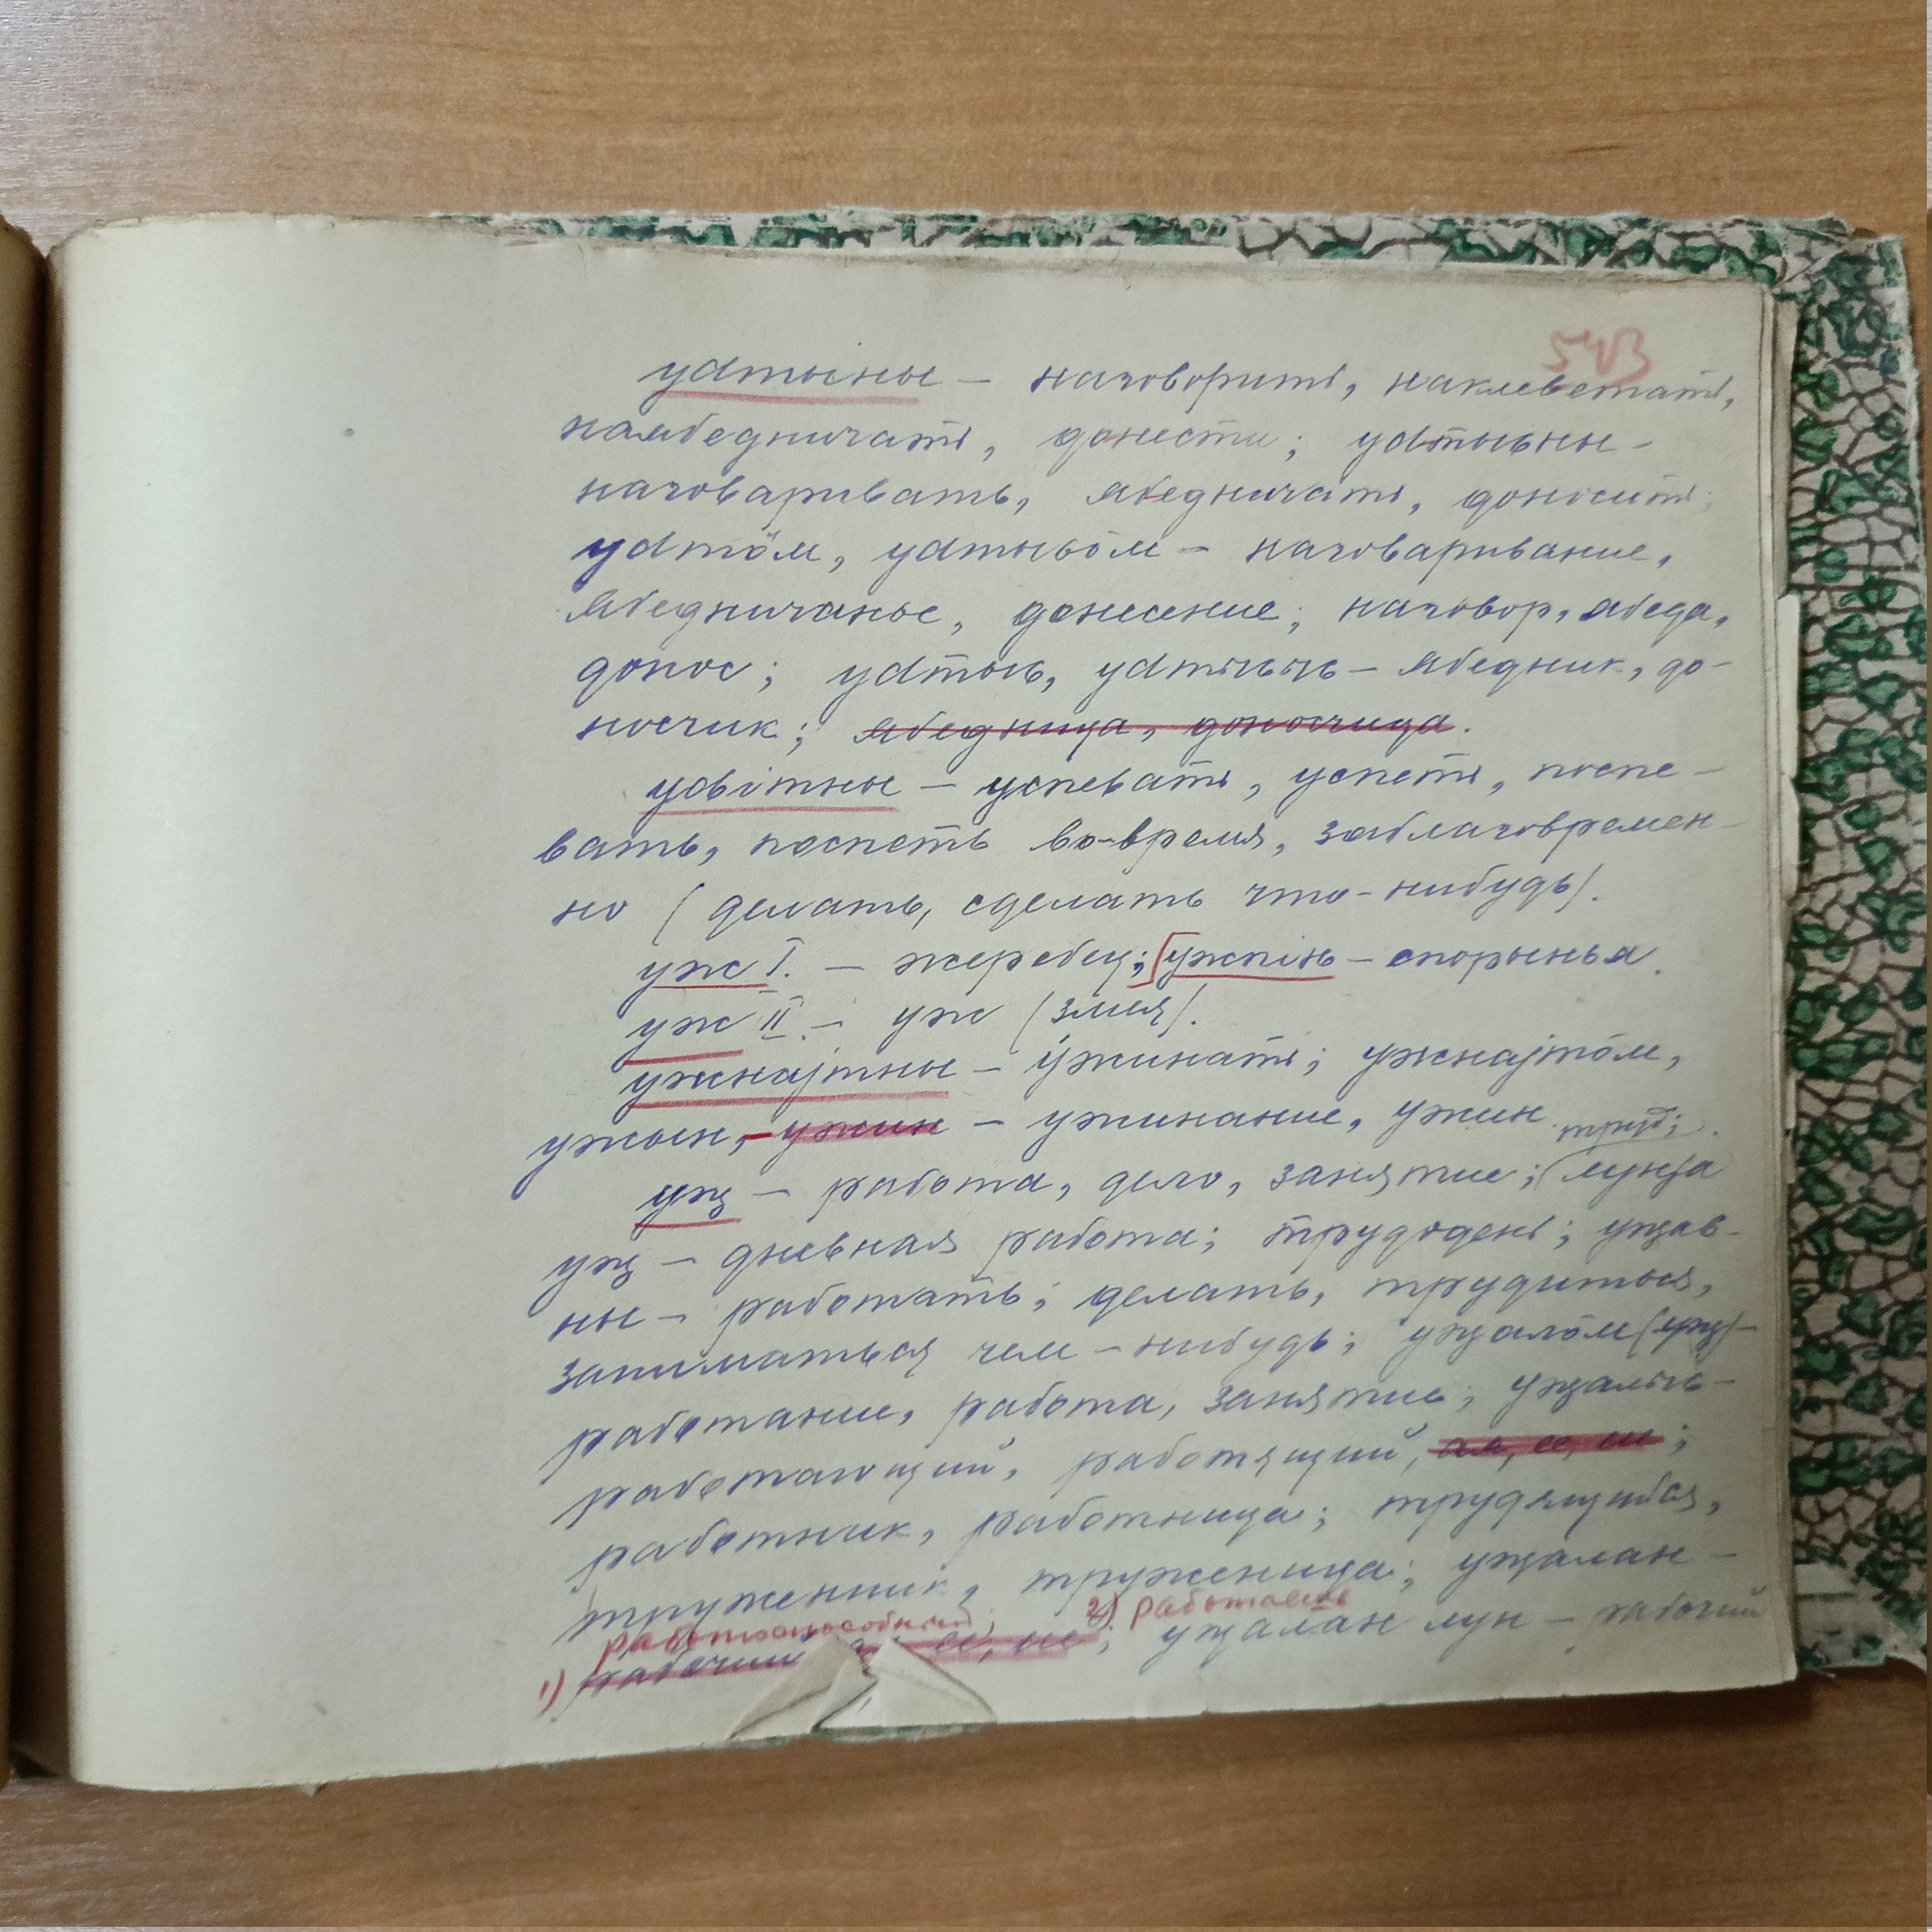 543
уdтыны – наговорить, наклеветать,
наябедничать, донести; уdтывны –
наговаривать, ябедничать, доносить;
уdтӧм, уdтывӧм – наговаривание,
ябедничанье, донесение; наговор, ябеда,
донос; уdтыś, уdтыlыś – ябедник, до-
носчик; ябедница, доносчица.
удітны – успевать, успеть, поспе-
вать, поспеть во-время, заблаговремен-
но (делать, сделать что-нибудь).
уж I. – жеребец; [ужпіń – спорынья.
уж II. – уж (змея).
ужнајтны – ужинать; ужнајтӧм,
ужын, – ужин – ужинание, ужин.
труд;
уҗ – работа, дело, занятие; (лунҗа
уҗ – дневная работа; трудодень; уҗав-
ны – работать; делать, трудиться,
заниматься чем-нибудь; уҗалӧм (уҗ) –
работание, работа, занятие; уҗалыś –
работающий, работящий, ая, ее, ие;
работник, работница; трудящийся,
труженник, труженица; уҗалан –
работоспособный, 2) работаешь
1) рабочий ая, ее, ие; уҗалан лун – рабочий